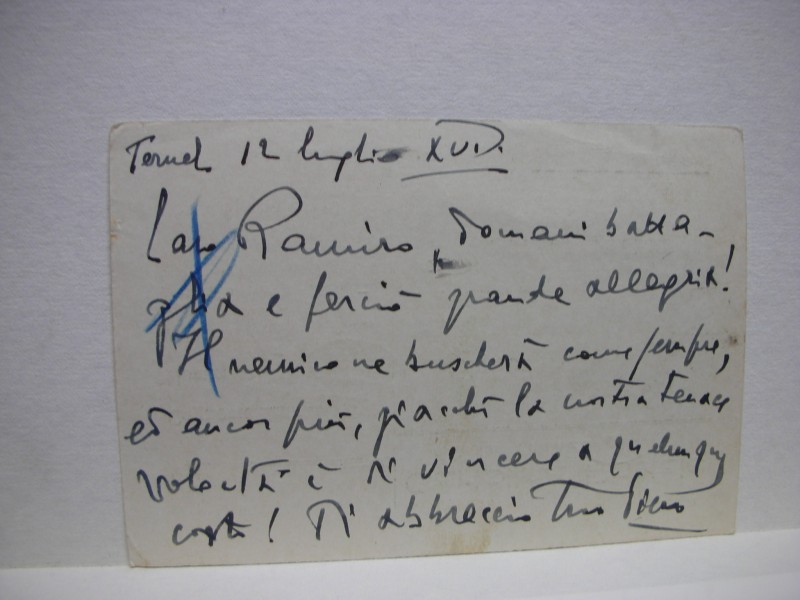 Teruel 12 luglio XVI.
Caro Ramiro, domani batta-
glia e perciò grande allegria!
Il nemico ne buscherà come sempre,
ed ancor più, giacchè la nostra tenace
volontà è di vincere a qualunque
costo! Ti abbraccio Tuo